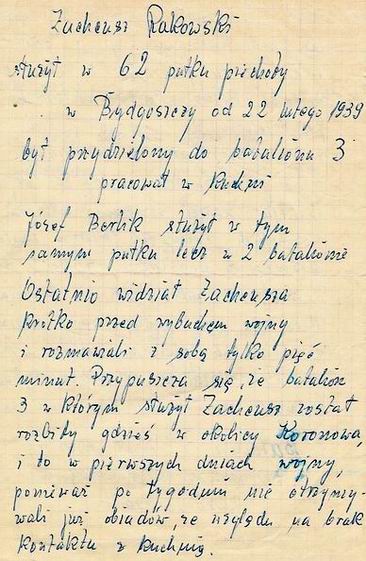 Zacheusz Rakowski
służył w 62 pułku piechoty
w Bydgoszczy od 22 lutego 1939
był przydzielony do batalionu 3
pracował w kuchni
Józef Berlik służył w tym
samym pułku lecz w 2 batalionie
Ostatnio widział Zacheusza
krótko przed wybuchem wojny
i rozmawiali z sobą tylko pięć
minut. Przypuszcza się, że batalion
3 w którym służył Zacheusz został
rozbity gdzieś w okolicy Koronowa,
i to w pierwszych dniach wojny,
ponieważ po tygodniu nie otrzymy-
wali już obiadów, ze względu na brak
kontaktu z kuchnią.